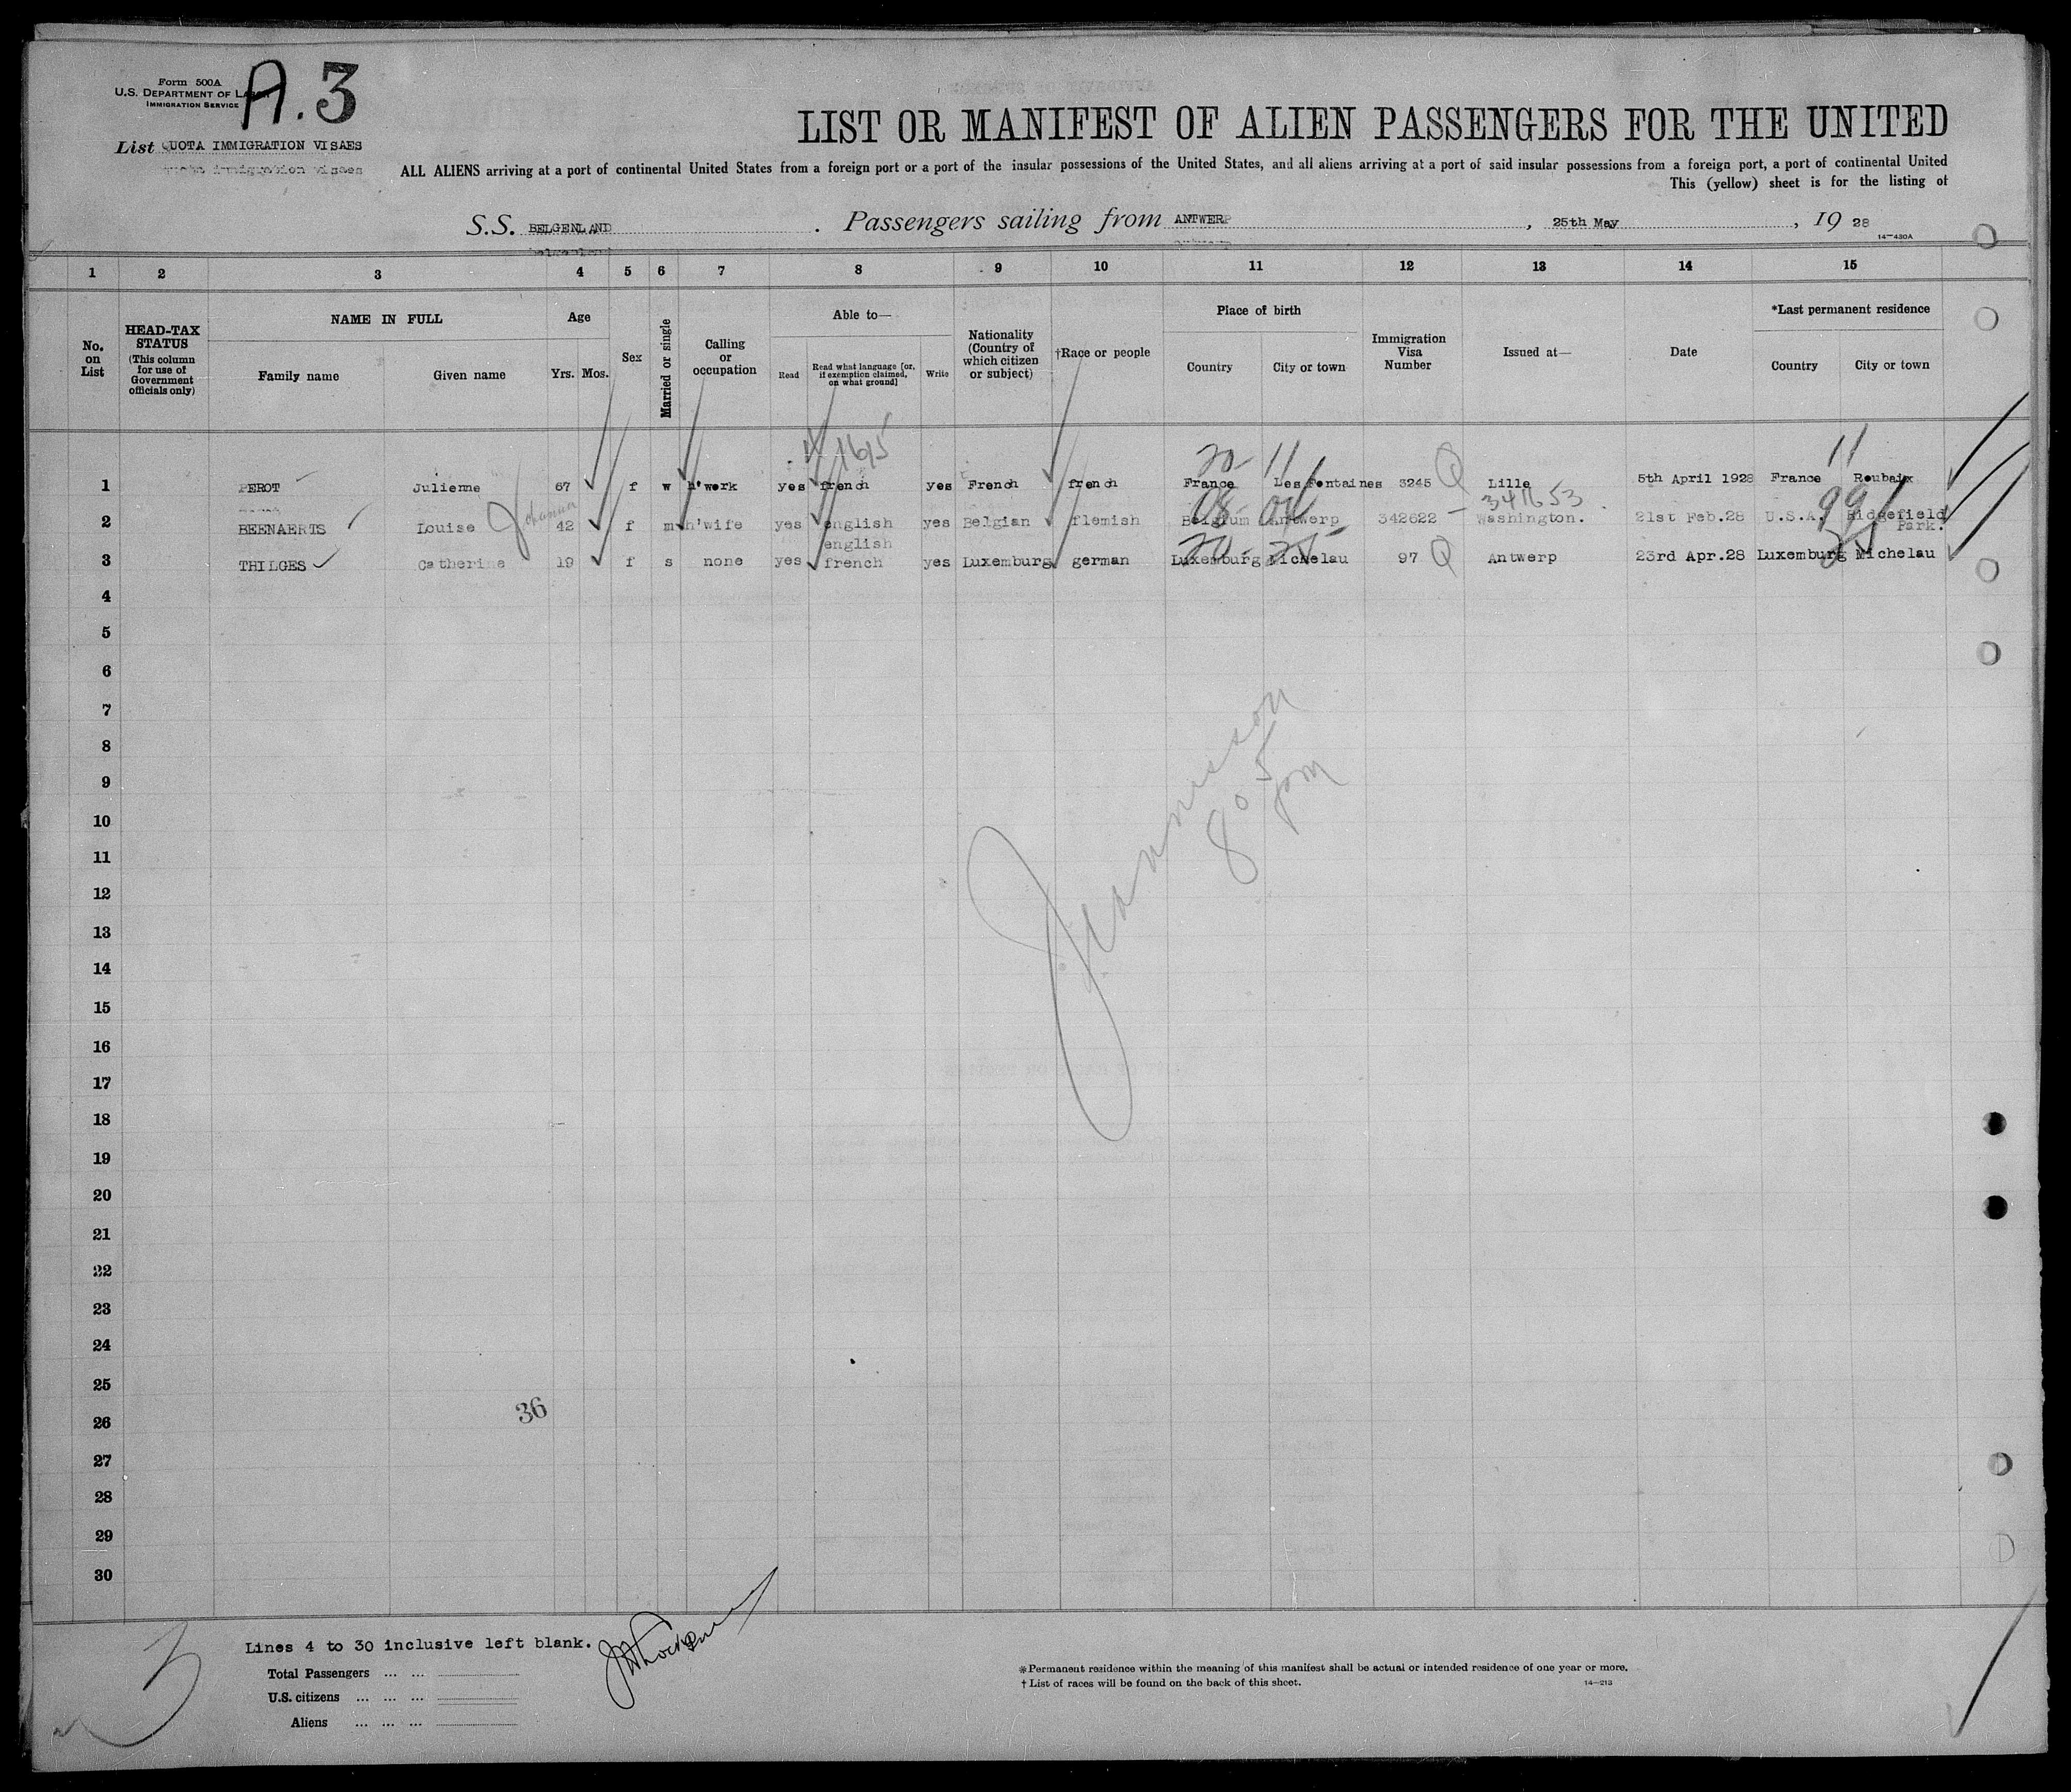 Form 500A
U.S. DEPARTMENT OF LABOR
IMMIGRATION SERVICE
A.3
LIST OR MANIFEST OF ALIEN PASSENGERS FOR THE UNITED
List QUOTA IMMIGRATION VISAES
ALL ALIENS arriving at a port of continental United States from a foreign port or a port of the insular possessions of the United States, and all aliens arriving at a port of said insular possessions from a foreign port, a port of continental United
This (yellow) sheet is for the listing of
S.S. BELGENLAND . Passengers sailing from ANTWERP , 25th May , 19 28
14—430A
1 2 3 4 5 6 7 8 9 10 11 12 13 14 15
No. on List
HEAD-TAX STATUS (This column for use of Government officials only)
NAME IN FULL
Family name Given name
Age
Yrs. Mos.
Sex
Married or single
Calling or occupation
Able to—
Read Read what language [or, if exemption claimed, on what ground] Write
Nationality (Country of which citizen or subject)
†Race or people
Place of birth
Country City or town
Immigration Visa Number
Issued at—
Date
*Last permanent residence
Country City or town
20- 11 Q 11
1 PEROT Julienne 67 f w h'work yes french yes French french France Les Fontaines 3245 Lille 5th April 1928 France Roubaix
08- 341653 99
2 BEENAERTS Louise Johanna 42 f m h'wife yes english yes Belgian flemish Belgium Antwerp 342622 Washington. 21st Feb.28 U.S.A. Ridgefield Park.
english
3 THILGES Catherine 19 f s none yes french yes Luxemburg german Luxemburg Michelau 97 Q Antwerp 23rd Apr.28 Luxemburg Michelau
4
5
6
7
8
9
10
11
12
13
14
15
16
17
18
19
20
21
22
23
24
25
26
27
28
29
30
805 pm
36
3
Lines 4 to 30 inclusive left blank.
Total Passengers ... ...
U.S. citizens ... ... ...
Aliens ... ... ...
*Permanent residence within the meaning of this manifest shall be actual or intended residence of one year or more.
† List of races will be found on the back of this sheet.
14—213